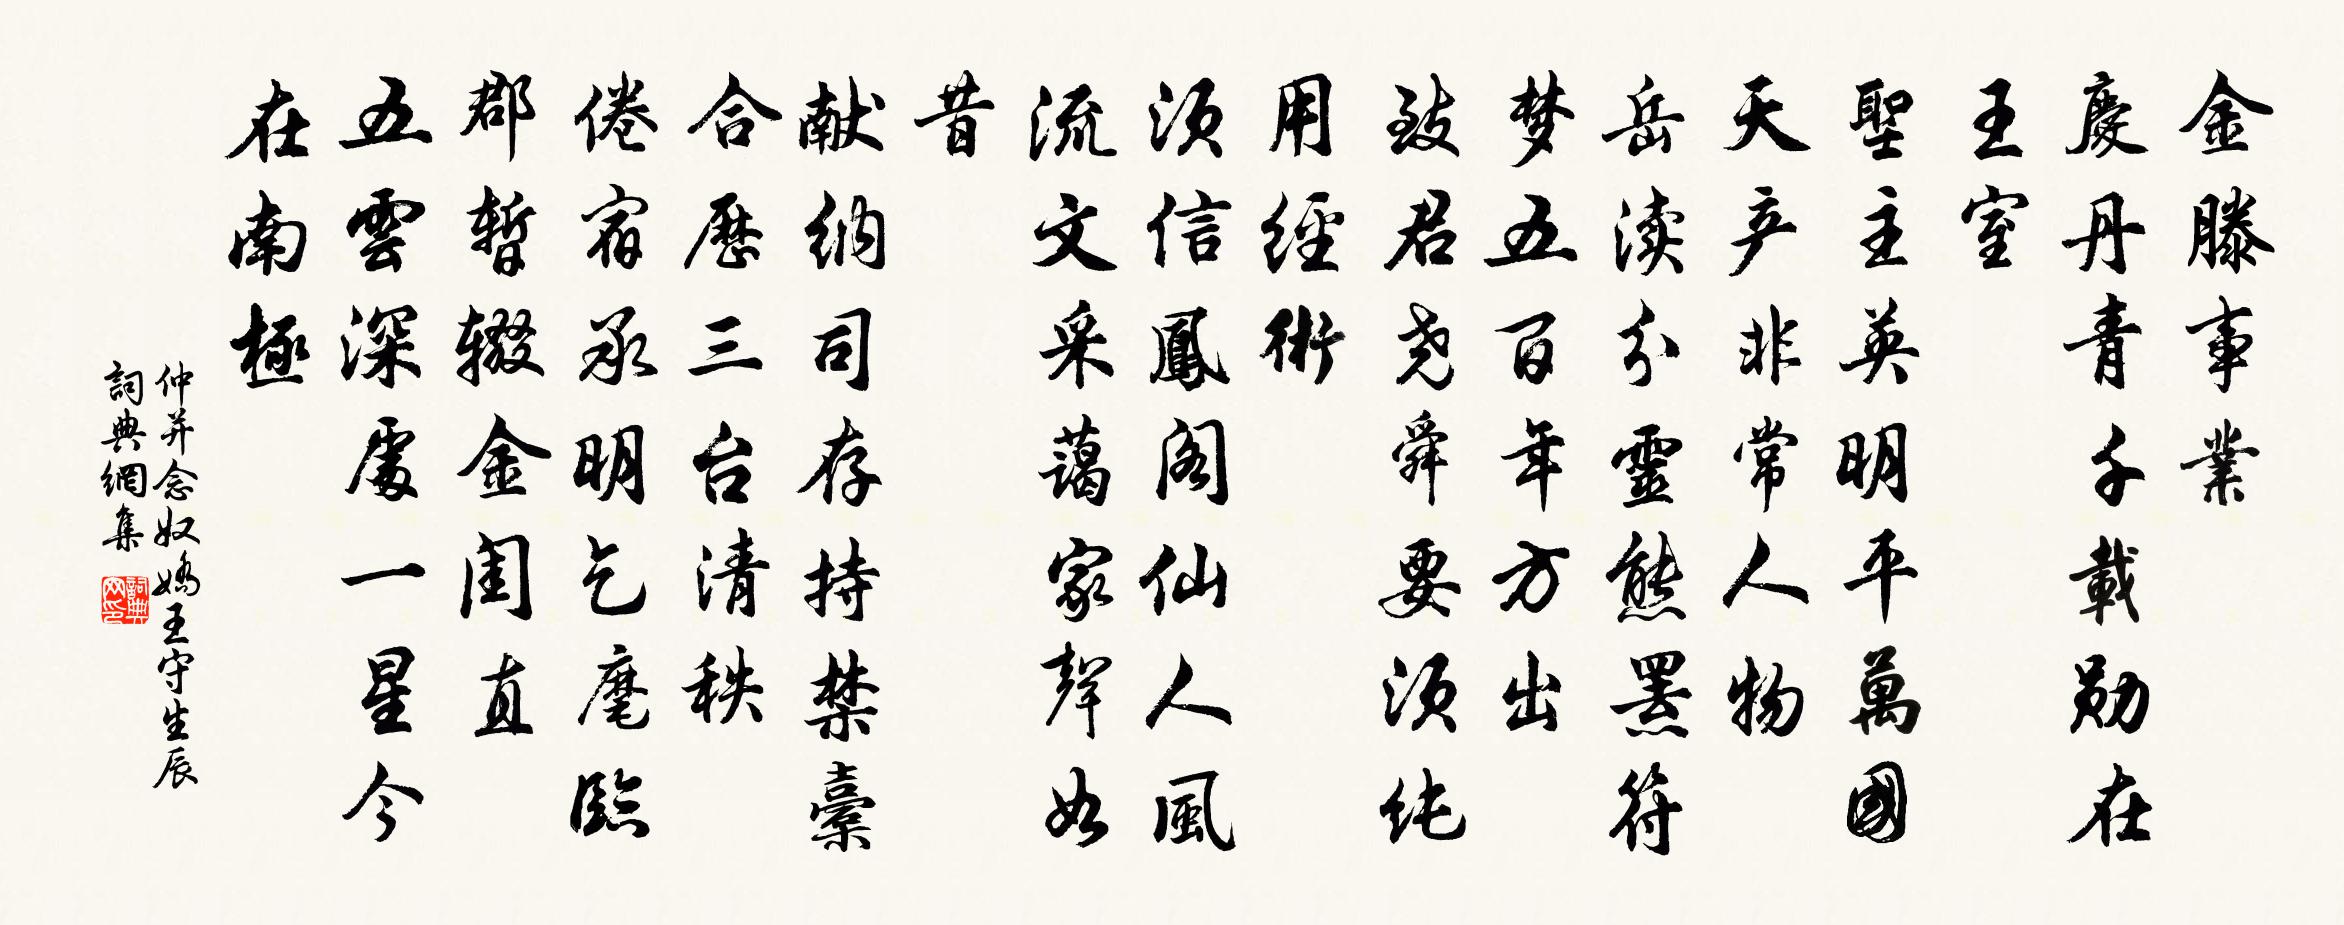 金滕事業
慶丹青千載勋在
王室
聖主英明平萬國
天产非常人物
岳渎分靈熊罴符
梦五百年方出
致君尧舜要须纯
用經術
须信鳳阁仙人風
流文采蔼家聲如
昔
献纳司存持禁橐
合歷三台清秩
倦宿承明乞麾臨
郡暂辍金闺直
五雲深處一星今
在南極
仲并念奴嬌王守生辰
詞典網集
詞典网印